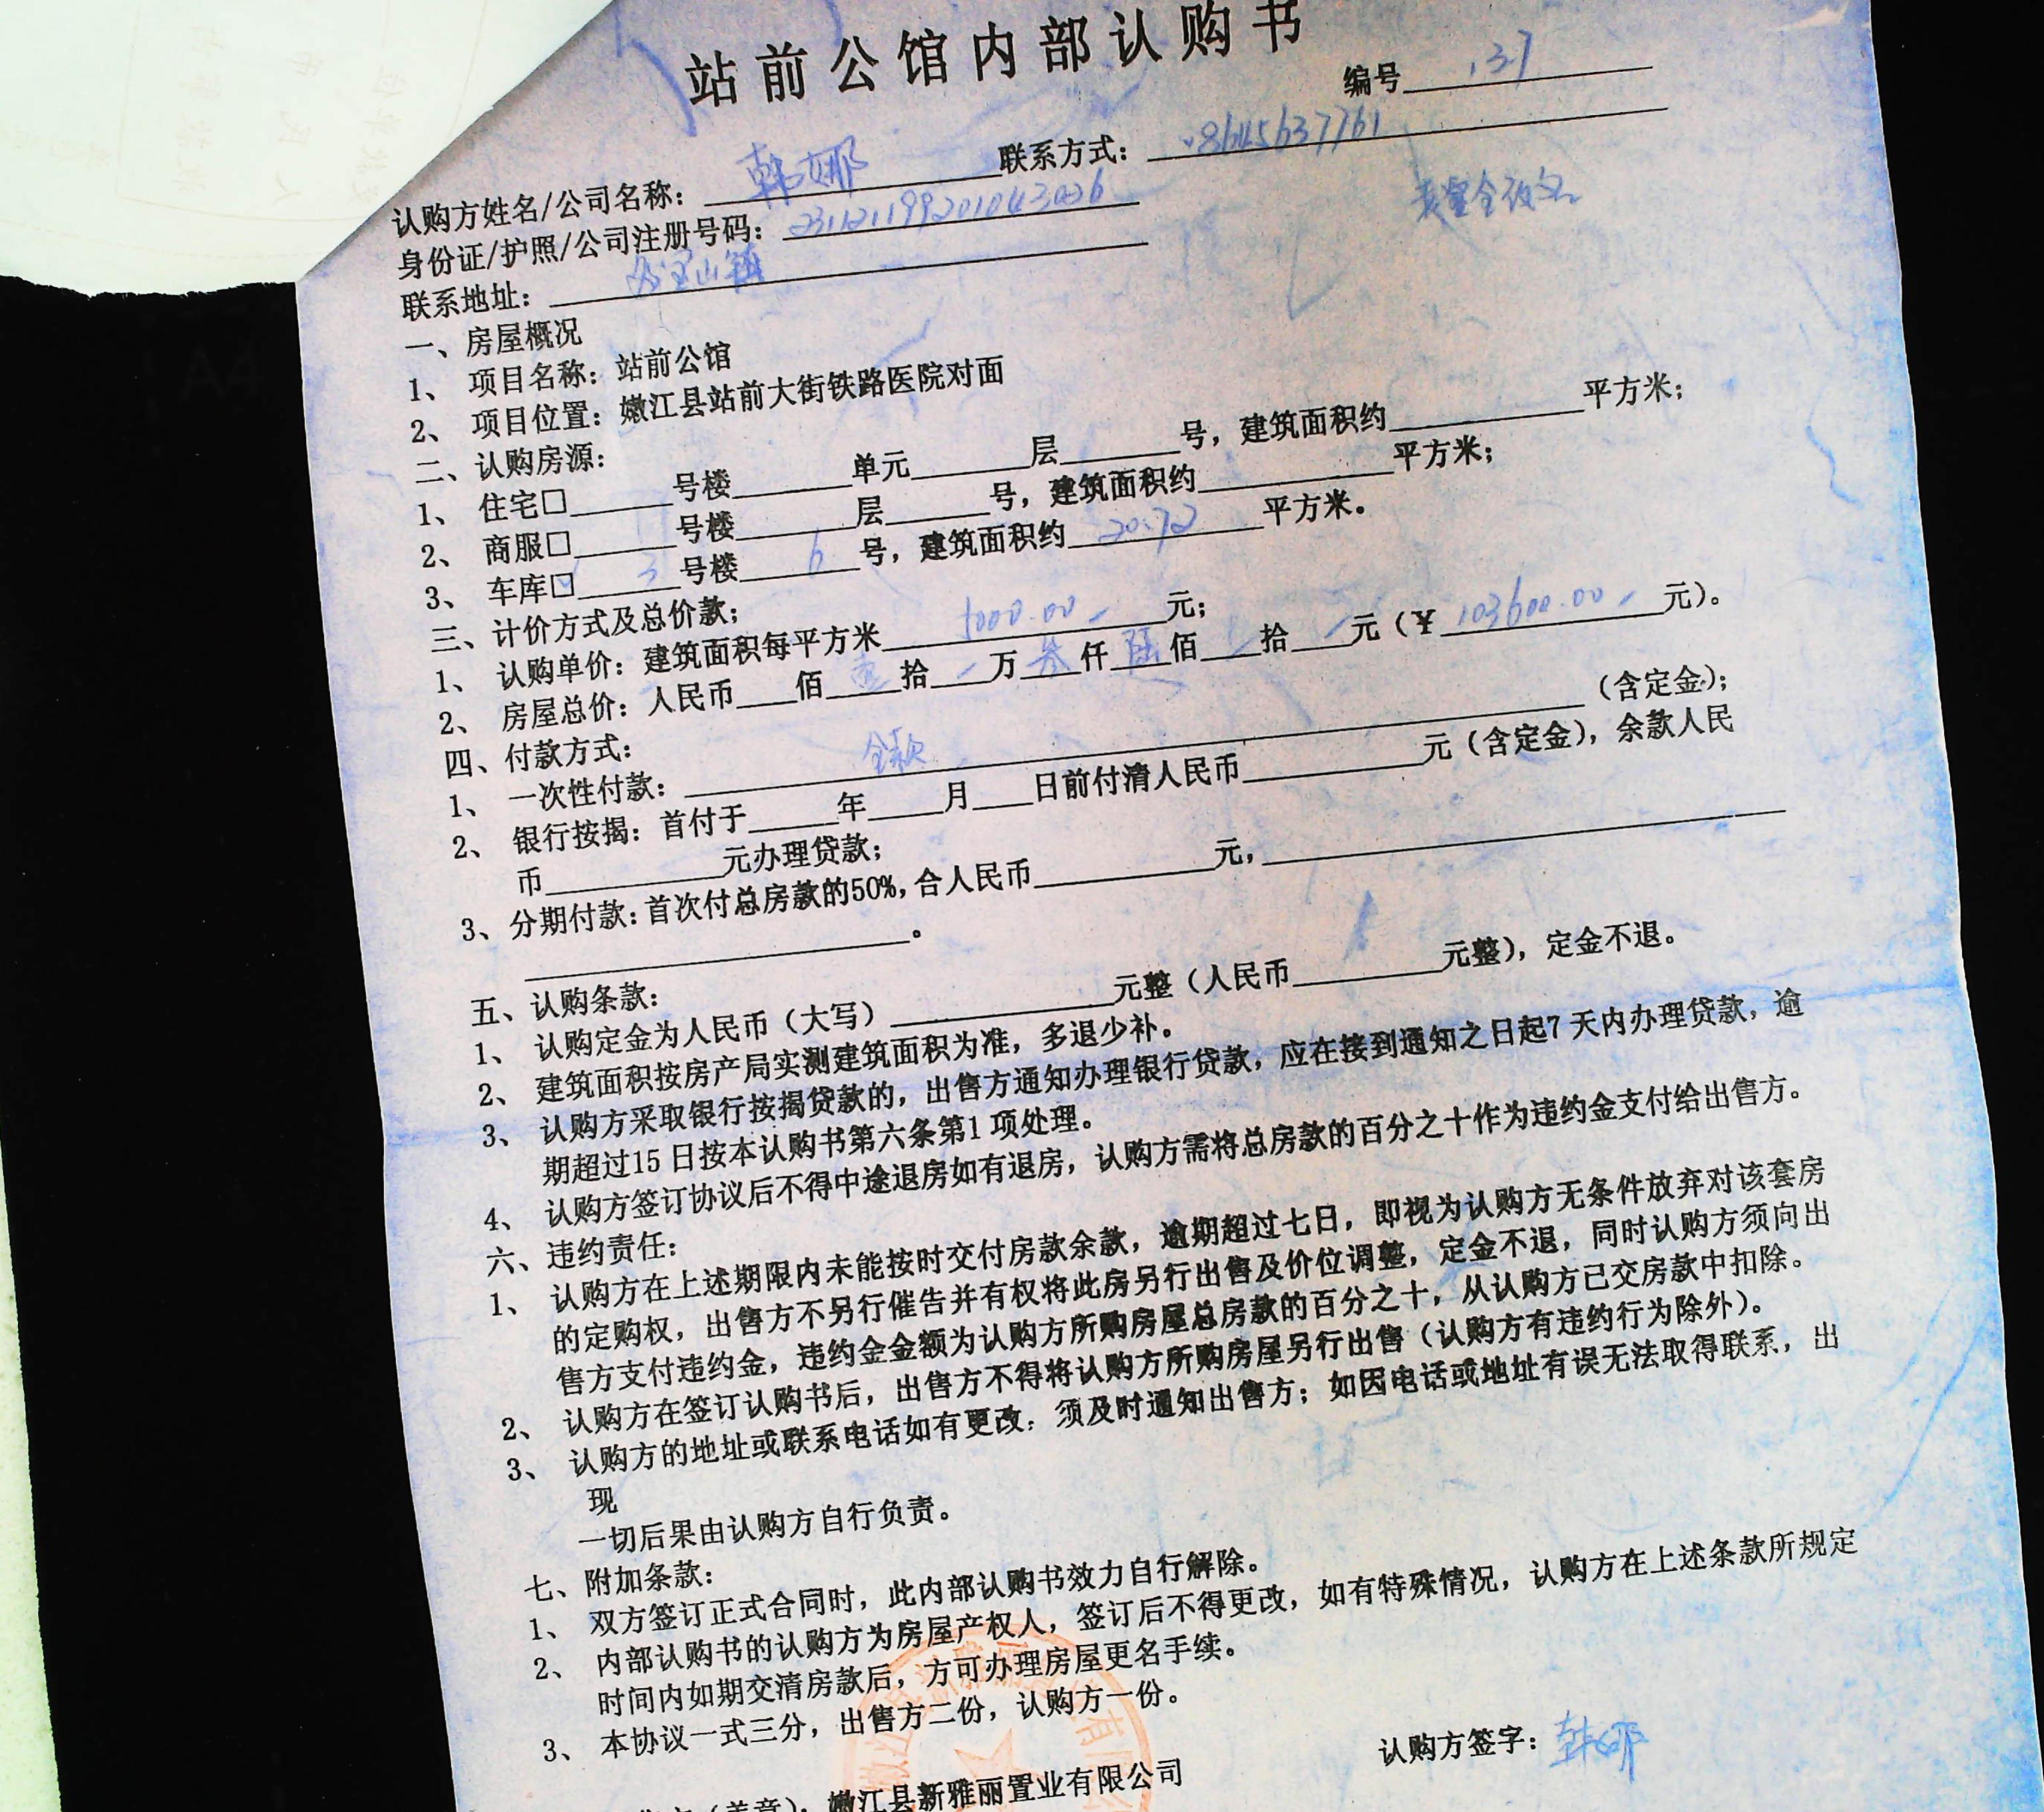 站前公馆内部认购书
编号 137
认购方姓名/公司名称：韩娜 联系方式：18645637761
身份证/护照/公司注册号码：231121199201043026
联系地址：多宝山镇
一、房屋概况
1、 项目名称：站前公馆
2、 项目位置：嫩江县站前大街铁路医院对面
二、认购房源：
1、 住宅□______号楼______单元______层______号，建筑面积约______平方米；
2、 商服□______号楼______层______号，建筑面积约______平方米；
3、 车库☑ 3 号楼 6 号，建筑面积约 20.72 平方米。
三、计价方式及总价款；
1、 认购单价：建筑面积每平方米 5000.00 元；
2、 房屋总价：人民币____佰 壹 拾 / 万 叁 仟 陆 佰 / 拾 / 元（¥ 103600.00 元）。
四、付款方式：
1、 一次性付款： 全款 （含定金）；
2、 银行按揭：首付于______年_____月____日前付清人民币______元（含定金），余款人民
币______元办理贷款；
3、分期付款：首次付总房款的50%，合人民币______元，______
______。
五、认购条款：
1、 认购定金为人民币（大写）______元整（人民币______元整），定金不退。
2、 建筑面积按房产局实测建筑面积为准，多退少补。
3、 认购方采取银行按揭贷款的，出售方通知办理银行贷款，应在接到通知之日起7 天内办理贷款，逾
期超过15 日按本认购书第六条第1 项处理。
4、 认购方签订协议后不得中途退房如有退房，认购方需将总房款的百分之十作为违约金支付给出售方。
六、违约责任：
1、 认购方在上述期限内未能按时交付房款余款，逾期超过七日，即视为认购方无条件放弃对该套房
的定购权，出售方不另行催告并有权将此房另行出售及价位调整，定金不退，同时认购方须向出
售方支付违约金，违约金金额为认购方所购房屋总房款的百分之十，从认购方已交房款中扣除。
2、 认购方在签订认购书后，出售方不得将认购方所购房屋另行出售（认购方有违约行为除外）。
3、 认购方的地址或联系电话如有更改，须及时通知出售方；如因电话或地址有误无法取得联系，出
现
一切后果由认购方自行负责。
七、附加条款：
1、 双方签订正式合同时，此内部认购书效力自行解除。
2、 内部认购书的认购方为房屋产权人，签订后不得更改，如有特殊情况，认购方在上述条款所规定
时间内如期交清房款后，方可办理房屋更名手续。
3、 本协议一式三分，出售方二份，认购方一份。
认购方签字：韩娜
（盖章）：嫩江县新雅丽置业有限公司